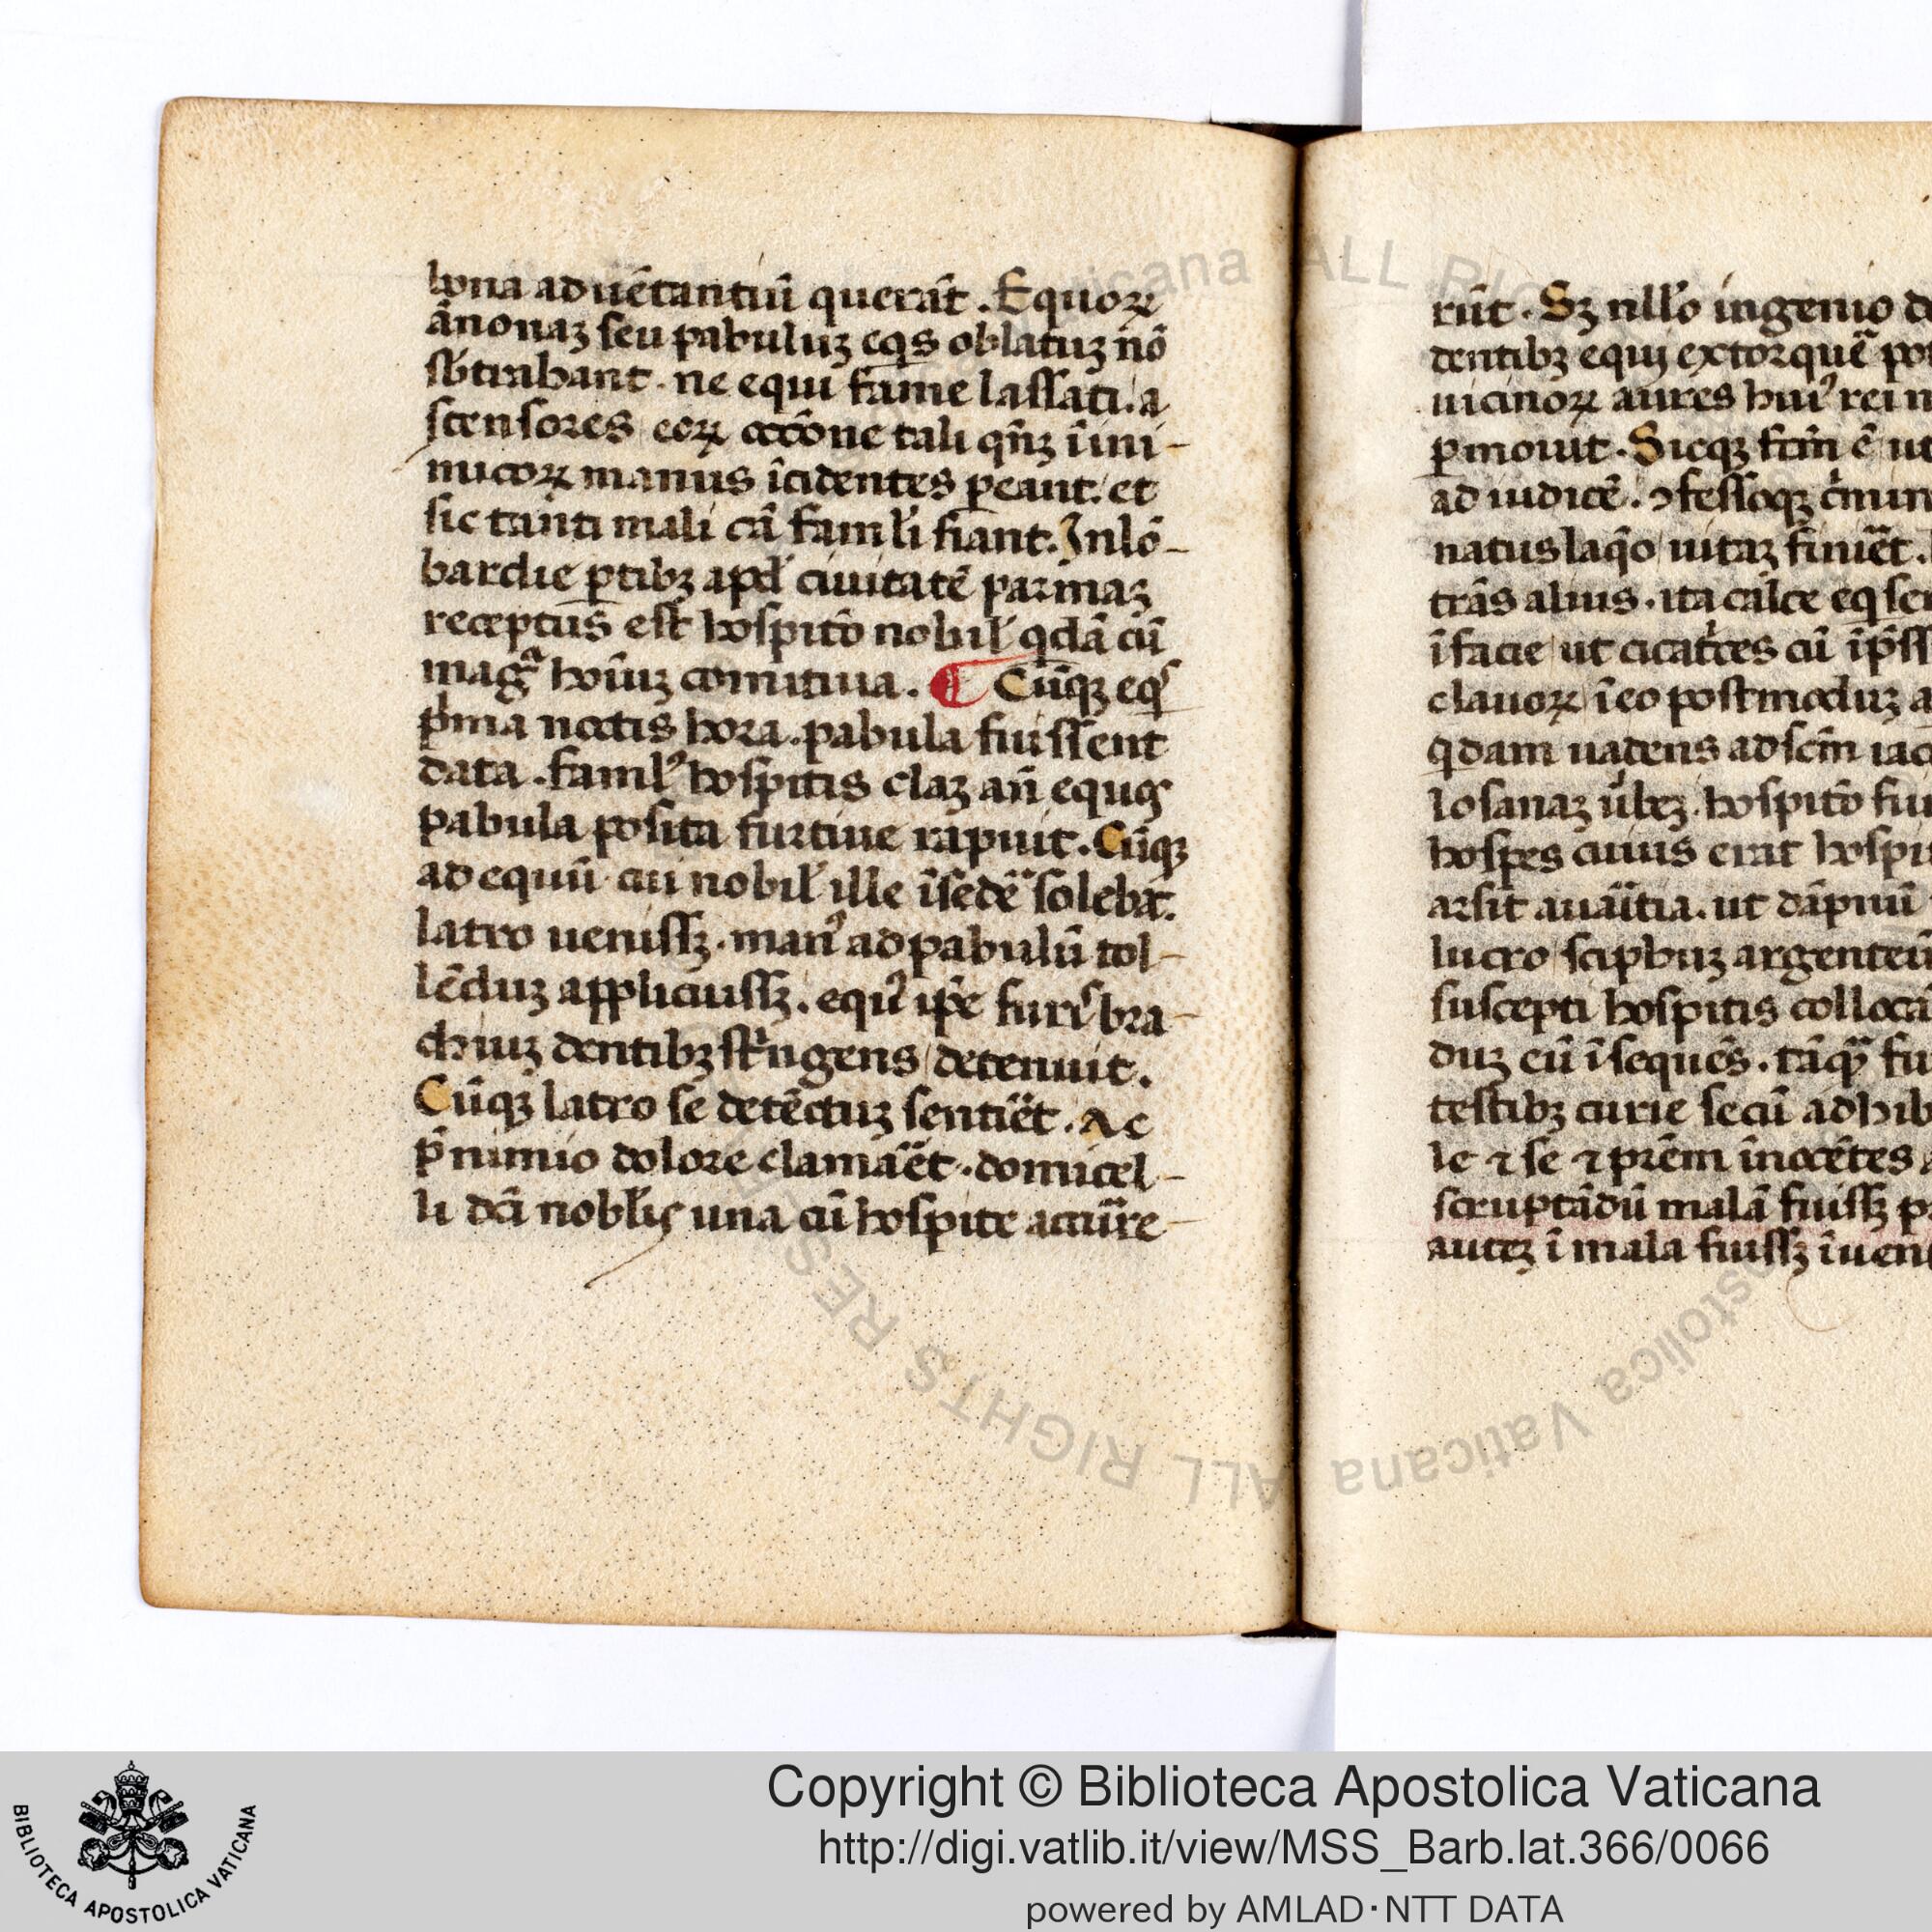 bona aduētantiū querāt. Equoꝝ
ānonaꝫ seu pabuluꝫ eqͥs oblatuꝫ nō
sb̾trahant. ne equi fame lassati. a
scensores eoꝝ occōne tali qn̄ꝫ īimi-
micoꝝ manus īcidentes ꝑeant. et
sic tanti mali cā famli fiant. In lō-
bardie ꝑtibꝫ apd̾ ciuitatē parmaꝫ
receptus est hospitō nobil̾ qͥdā cū
magͣ hoīuꝫ comitiua. ¶ Cūqꝫ eqͥs
pͥma noctis hora. pabula fuissent
data. faml̾ꝰ hospitis claꝫ an̄ equos
pabula posita furtiue rapuit. Cūqꝫ
ad equū cui nobil̾ ille īsedē solebat.
latro uenissꝫ. manꝰ ad pabulū tol-
lēduꝫ appliciussꝫ. equꝰ ip̄e furis bra-
chiuꝫ dentibꝫ stͥngens detenuit.
Cūqꝫ latro se detēctuꝫ sentiēt. Ac
p̄ nimio dolore clamāet. domicel-
li dc̄i nobl̾is una cū hospite accūre-
rūt. Sꝫ nll̾o ingenio
dentibꝫ equi extorquē
uicinoꝝ aures huiꝰ rei
ꝑmouit. Sicqꝫ fc̄m ē
ad iudicē. ꝯfessoqꝫ
natus laqͦo uitaꝫ finiēt.
trās alius. ita calce
ī facie ut cicatͥces cū
clauoꝝ ī eo postmoduꝫ
qͥdam uadens ad sc̄m
losanaꝫ uͬbeꝫ. hospitō
hospes cuius erat
arsit auāitia. ut
lucro sciphuꝫ argenteū
suscepti hospitis
duꝫ eū īsequēs. tāqͣꝫ
testibꝫ curie secū
le ⁊ se ⁊ pr̄em īnocētes
scruptādū malā fuissꝫ
auteꝫ ī mala fuissꝫ
BIBLIOTECA APOSTOLICA VATICANA
Copyright © Biblioteca Apostolica Vaticana
http://digi.vatlib.it/view/MSS_Barb.lat.366/0066
powered by AMLAD·NTT DATA